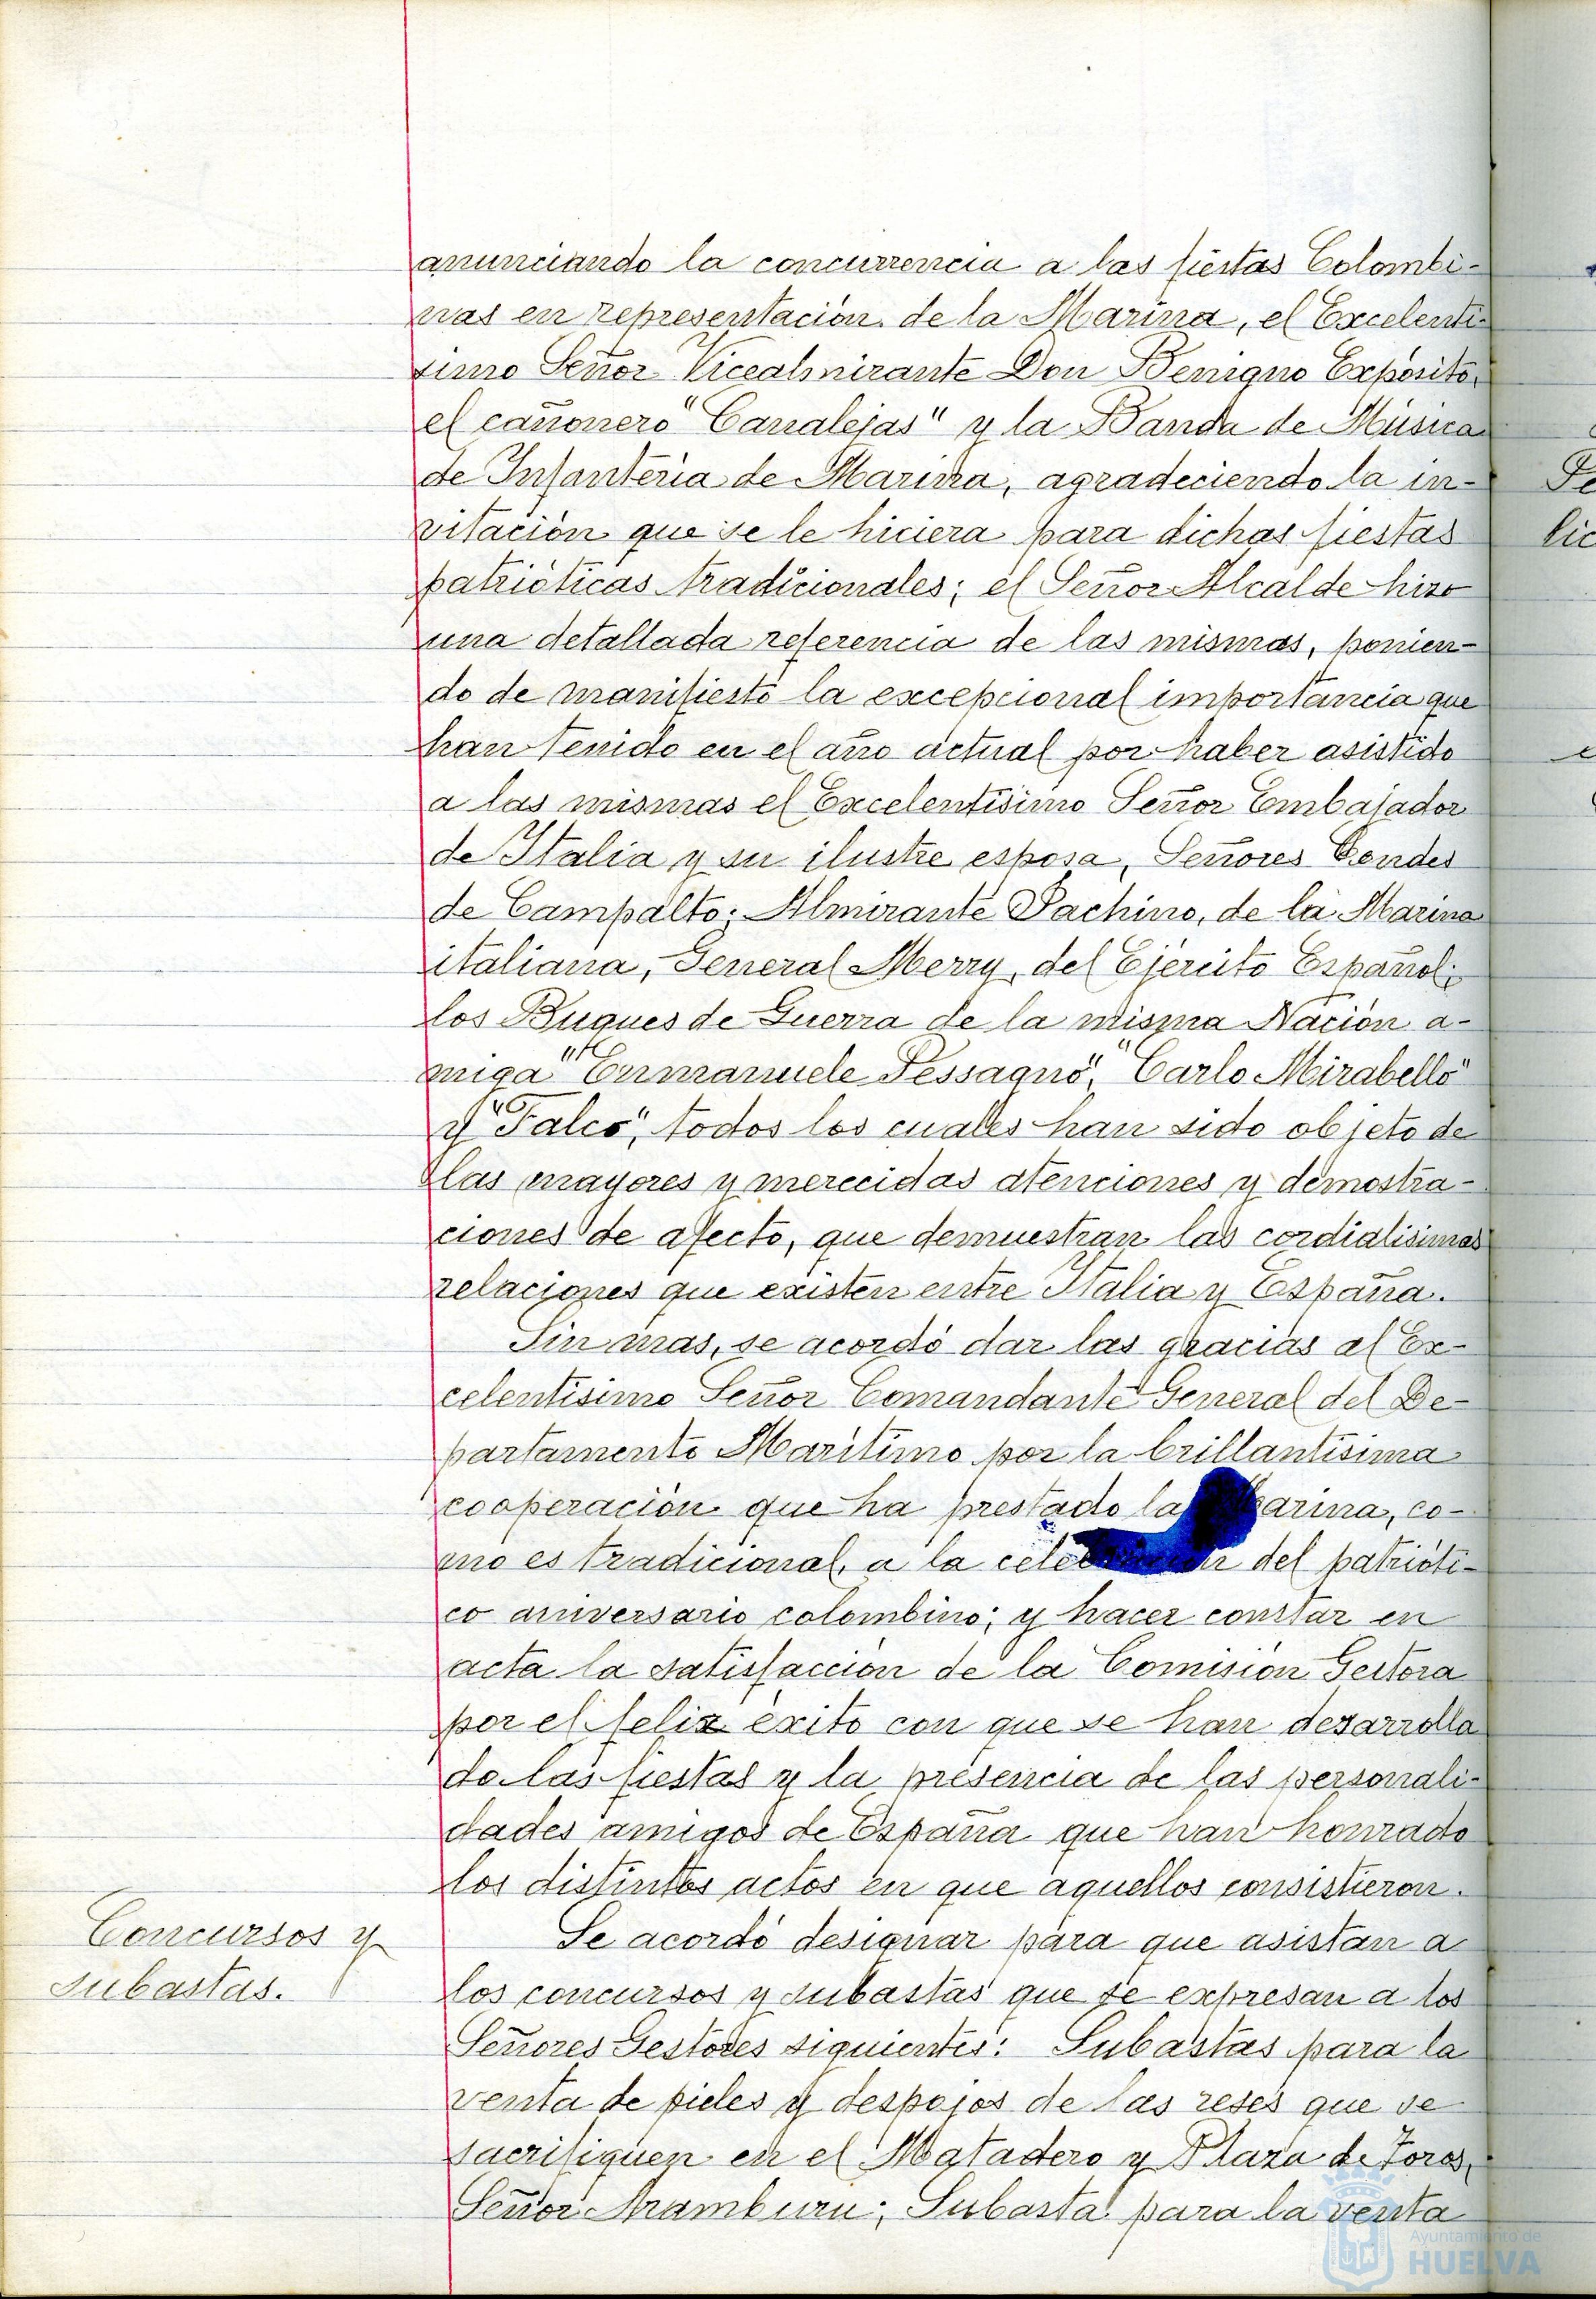 anunciando la concurrencia a las fiestas Colombi-
nas en representación de la Marina, el Excelentí-
simo Señor Vicealmirante Don Benigno Expósito,
el cañonero "Canalejas" y la Banda de Música
de Infantería de Marina, agradeciendo la in-
vitación que se le hiciera para dichas fiestas
patrióticas tradicionales; el Señor Alcalde hizo
una detallada referencia de las mismas, ponien-
do de manifiesto la excepcional importancia que
han tenido en el año actual por haber asistido
a las mismas el Excelentísimo Señor Embajador
de Italia y su ilustre esposa, Señores Condes
de Campalto; Almirante Pachino, de la Marina
italiana, General Merry, del Ejército Español;
los Buques de Guerra de la misma Nación a-
miga "Enmanuele Pessagno", "Carlo Mirabello"
y "Falco", todos los cuales han sido objeto de
las mayores y merecidas atenciones y demostra-
ciones de afecto, que demuestran las cordialisimas
relaciones que existen entre Italia y España.
Sin mas, se acordó dar las gracias al Ex-
celentísimo Señor Comandante General del De-
partamento Marítimo por la brillantísima
cooperación que ha prestado la Marina, co-
mo es tradicional, a la celebración del patrióti-
co aniversario colombino; y hacer constar en
acta la satisfacción de la Comisión Gestora
por el feliz éxito con que se han desarrolla
do las fiestas y la presencia de las personali-
dades amigos de España que han honrado
los distintos actos en que aquellos consistieron.
Concursos y
subastas.
Se acordó designar para que asistan a
los concursos y subastas que se expresan a los
Señores Gestores siguientes: Subastas para la
venta de pieles y despojos de las reses que se
sacrifiquen en el Matadero y Plaza de Toros,
Señor Aramburu; Subasta para la venta
Ayuntamiento de
HUELVA